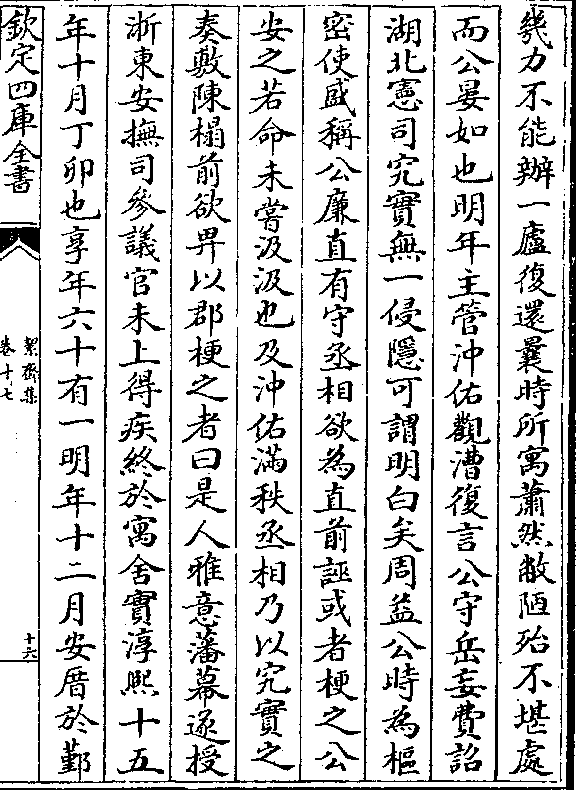 幾力不能辦一廬復還曩時所寓蕭然敝陋殆不堪處
而公晏如也明年主管沖佑觀漕復言公守岳妄費詔
湖北憲司究實無一侵隱可謂明白矣周益公時為樞
密使盛稱公廉直有守丞相欲為直前誣或者梗之公
安之若命未嘗汲汲也及沖佑滿秩丞相乃以究實之
奏敷陳榻前欲畀以郡梗之者曰是人雅意藩幕遂授
浙東安撫司參議官未上得疾終於寓舍實淳熙十五
年十月丁卯也享年六十有一明年十二月安厝於鄞
欽定四庫全書
絜齋集
卷十七
十六